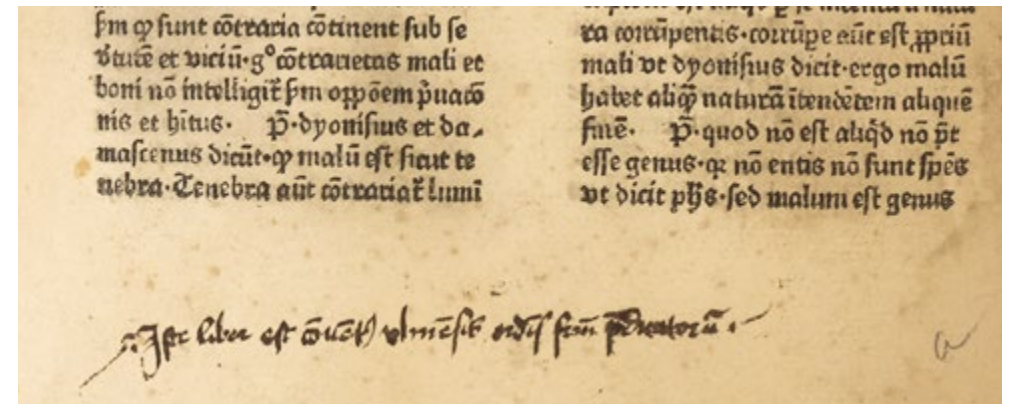 ẜm ꝙ sunt cōtraria cōtinent sub se
v̓tutē et viciū·gº cōtrarietas mali et
boni nō intelligit᷑ ẜm oppōem p̓uatō
nis et hītus· P̄·dyonisius et da⸗
mascenus dicūt·ꝙ malū est sicut te
nebra·Tenebra aūt cōtrariat᷑ lumī
ra corrūpentis·corrūpe aūt est ꝓpriū
mali vt dyonisius dicit·ergo malū
habet aliqͣ̄ naturā ītendētem aliquē
finē· P̄·quod nō est aliqͥd nō pōt
esse genus·qꝛ nō entis nō sunt spēs
vt dicit pħs·sed malum est genus
Iste liber est cōuentꝰ vlmēsis ordīs frm̄ p̄dicatorū·
a